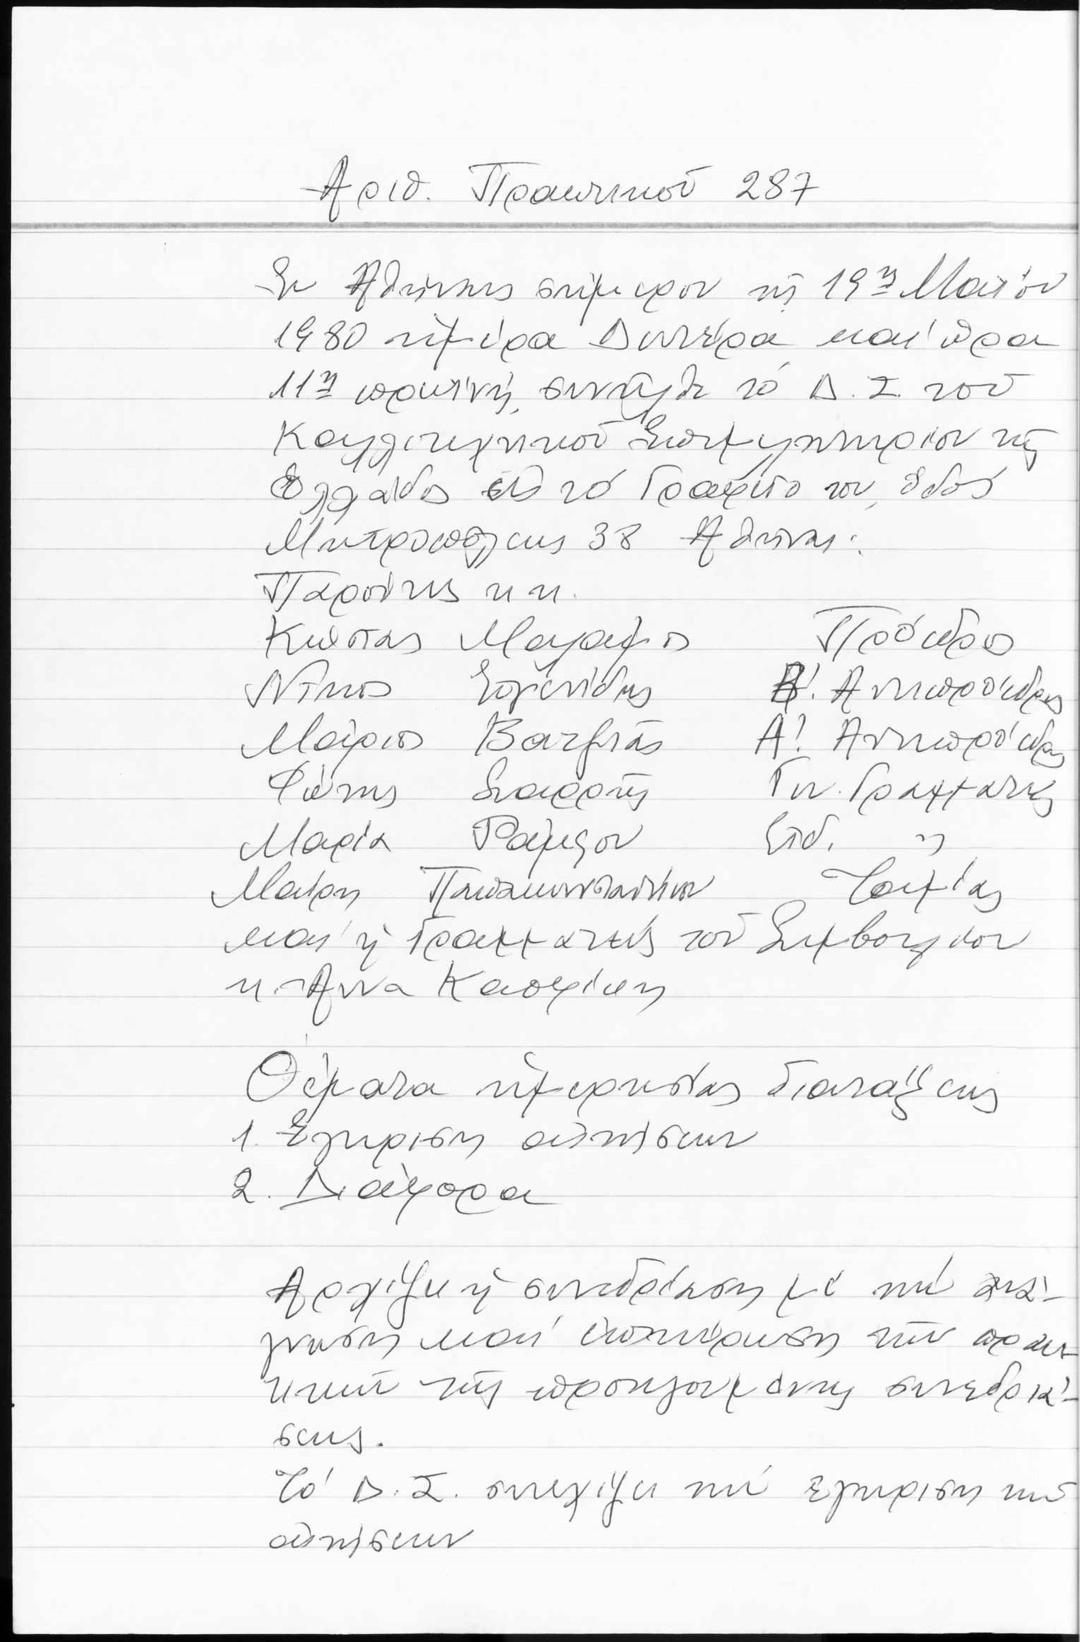 Ἀριθ. Πρακτικοῦ 287
Ἐν Ἀθήναις σήμερον τῇ 19ῃ Μαΐου
1980 ἡμέρα Δευτέρα καί ὥρα
11η πρωϊνή, συνῆλθε τό Δ.Σ. τοῦ
Καλλιτεχνικοῦ Ἐπιμελητηρίου τῆς
Ἑλλάδος εἰς τό Γραφεῖο του, ὁδός
Μητροπόλεως 38 Ἀθήναι.
Παρόντες κ.κ.
Κώστας Μαλάμος Πρόεδρος
Νῖκος Β'. Ἀντιπρόεδρος
Μάριος Βατζιᾶς Α'. Ἀντιπρόεδρος
Φώτης Γεν. Γραμματεύς
Μαρία Εἰδ. "
Μαίρη Παπακωνσταντίνου Ταμίας
καί ἡ Γραμματεύς τοῦ Συμβουλίου
κ. Ἄννα
Θέματα ἡμερησίας διατάξεως
1. Ἔγκριση αἰτήσεων
2. Διάφορα
Ἀρχίζει ἡ συνεδρίαση μέ τήν ἀνά-
γνωση καί ἐπικύρωση τῶν πρακ-
τικῶν τῆς προηγουμένης συνεδριά-
σεως.
Τό Δ.Σ. συνεχίζει τήν ἔγκριση τῶν
αἰτήσεων